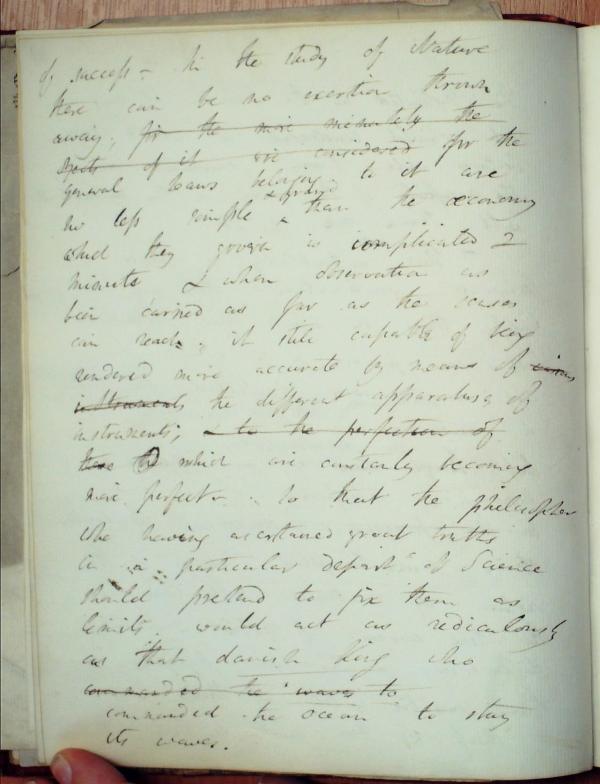 of success - In the study of Nature
there can be no exertion thrown
away; for the more minutely the
of it are considered for the
general laws belonging to it are
& grand
no less simple ^ than the œconomy
which they govern is complicated &
minute & when observation has
been carried as far as the senses
can reach, it still capable of being
rendered more accurate by means of
instruments the different apparatus, of
instruments; & to the perfection of
these which are constantly becoming
more perfect - so that the philosopher
who having ascertained great truths
in a particular depart^t of Science
should pretend to fix them as
limits would act as ridiculously
as that danish King who
commanded the waves to
commanded the ocean to stay
its waves.